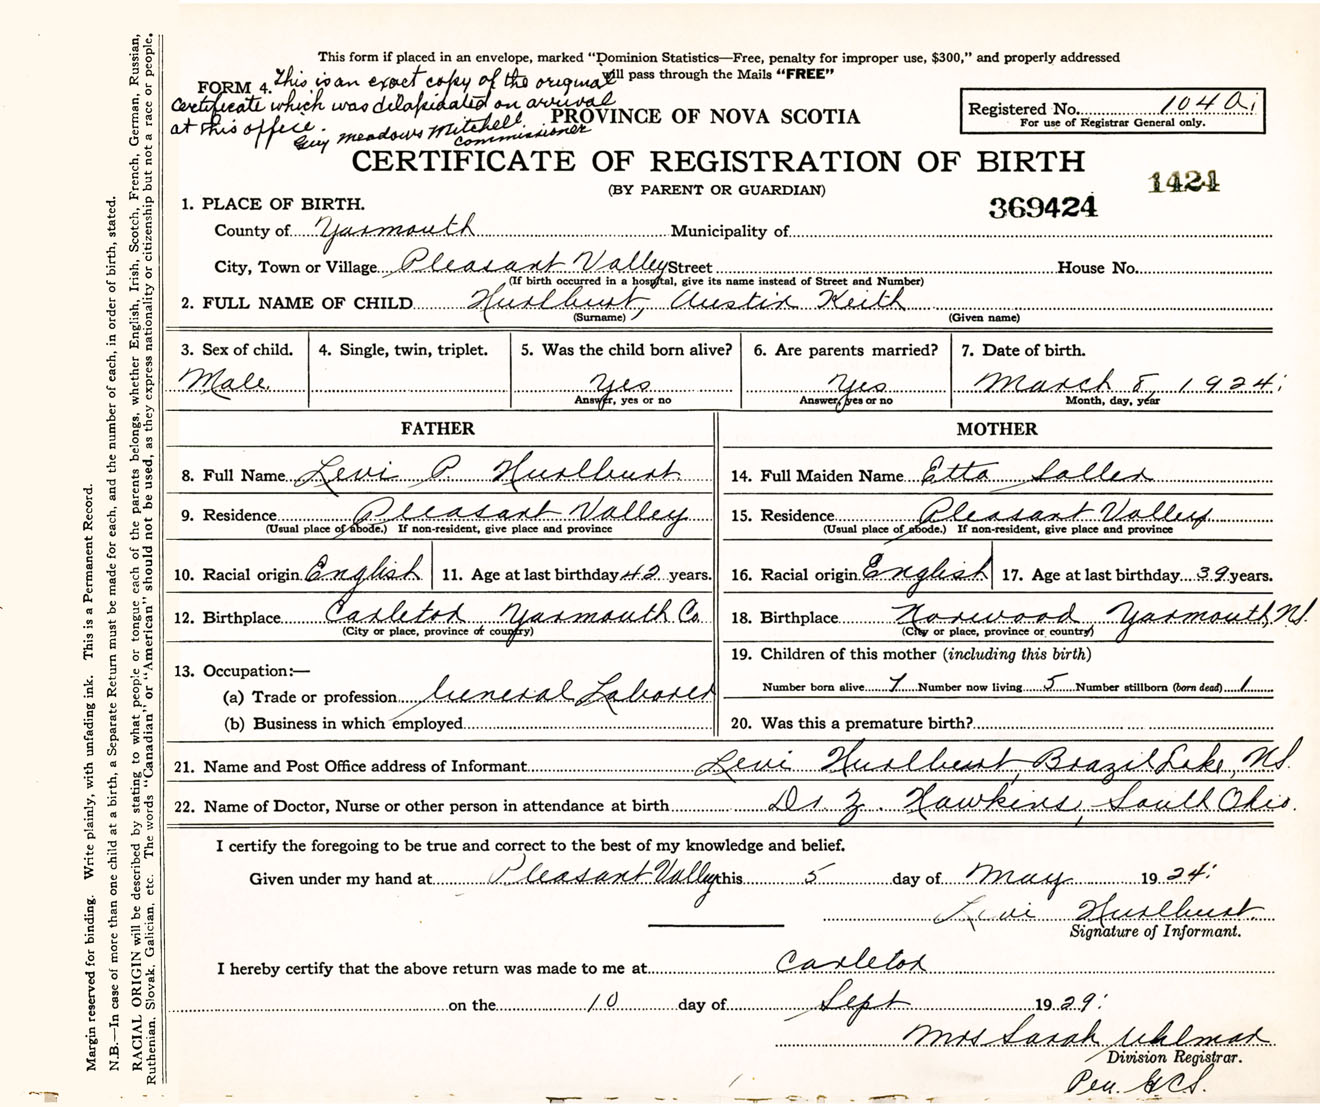 This form if placed in an envelope, marked “Dominion Statistics—Free, penalty for improper use, $300,” and properly addressed
will pass through the Mails “FREE”
FORM 4.
This is an exact copy of the original
certificate which was dilapidated on arrival
at this office. Guy Meadows Mitchell
Commissioner
PROVINCE OF NOVA SCOTIA
Registered No. 104 a;
For use of Registrar General only.
CERTIFICATE OF REGISTRATION OF BIRTH
(BY PARENT OR GUARDIAN)
1424
369424
1. PLACE OF BIRTH.
County of Yarmouth Municipality of
City, Town or Village Pleasant Valley Street House No.
(If birth occurred in a hospital, give its name instead of Street and Number)
2. FULL NAME OF CHILD Hurlburt, Austin Keith
(Surname) (Given name)
3. Sex of child. 4. Single, twin, triplet. 5. Was the child born alive? 6. Are parents married? 7. Date of birth.
Male. Yes Yes March 8, 1924;
Answer, yes or no Answer, yes or no Month, day, year
FATHER MOTHER
8. Full Name Levi P. Hurlburt. 14. Full Maiden Name Etta Sollen
9. Residence Pleasant Valley 15. Residence Pleasant Valley
(Usual place of abode.) If non-resident, give place and province (Usual place of abode.) If non-resident, give place and province
10. Racial origin English 11. Age at last birthday 42 years. 16. Racial origin English 17. Age at last birthday 39 years.
12. Birthplace Carleton Yarmouth Co. 18. Birthplace Norwood, Yarmouth, N.S.
(City or place, province or country) (City or place, province or country)
13. Occupation:— 19. Children of this mother (including this birth)
(a) Trade or profession General Laborer Number born alive 7 Number now living 5 Number stillborn (born dead) 1
(b) Business in which employed 20. Was this a premature birth?
21. Name and Post Office address of Informant Levi Hurlburt, Brazil Lake, N.S.
22. Name of Doctor, Nurse or other person in attendance at birth Dr Z. Hawkins, South Ohio.
I certify the foregoing to be true and correct to the best of my knowledge and belief.
Given under my hand at Pleasant Valley this 5 day of May 1924;
Levi Hurlburt.
Signature of Informant.
I hereby certify that the above return was made to me at Carleton
on the 10 day of Sept 1929;
Mrs Sarah Uhlman
Division Registrar.
Per. G.C.S.
Margin reserved for binding. Write plainly, with unfading ink. This is a Permanent Record.
N.B.—In case of more than one child at a birth, a Separate Return must be made for each, and the number of each, in order of birth, stated.
RACIAL ORIGIN will be described by stating to what people or tongue each of the parents belongs, whether English, Irish, Scotch, French, German, Russian,
Ruthenian, Slovak, Galician, etc. The words “Canadian” or “American” should not be used, as they express nationality or citizenship but not a race or people.